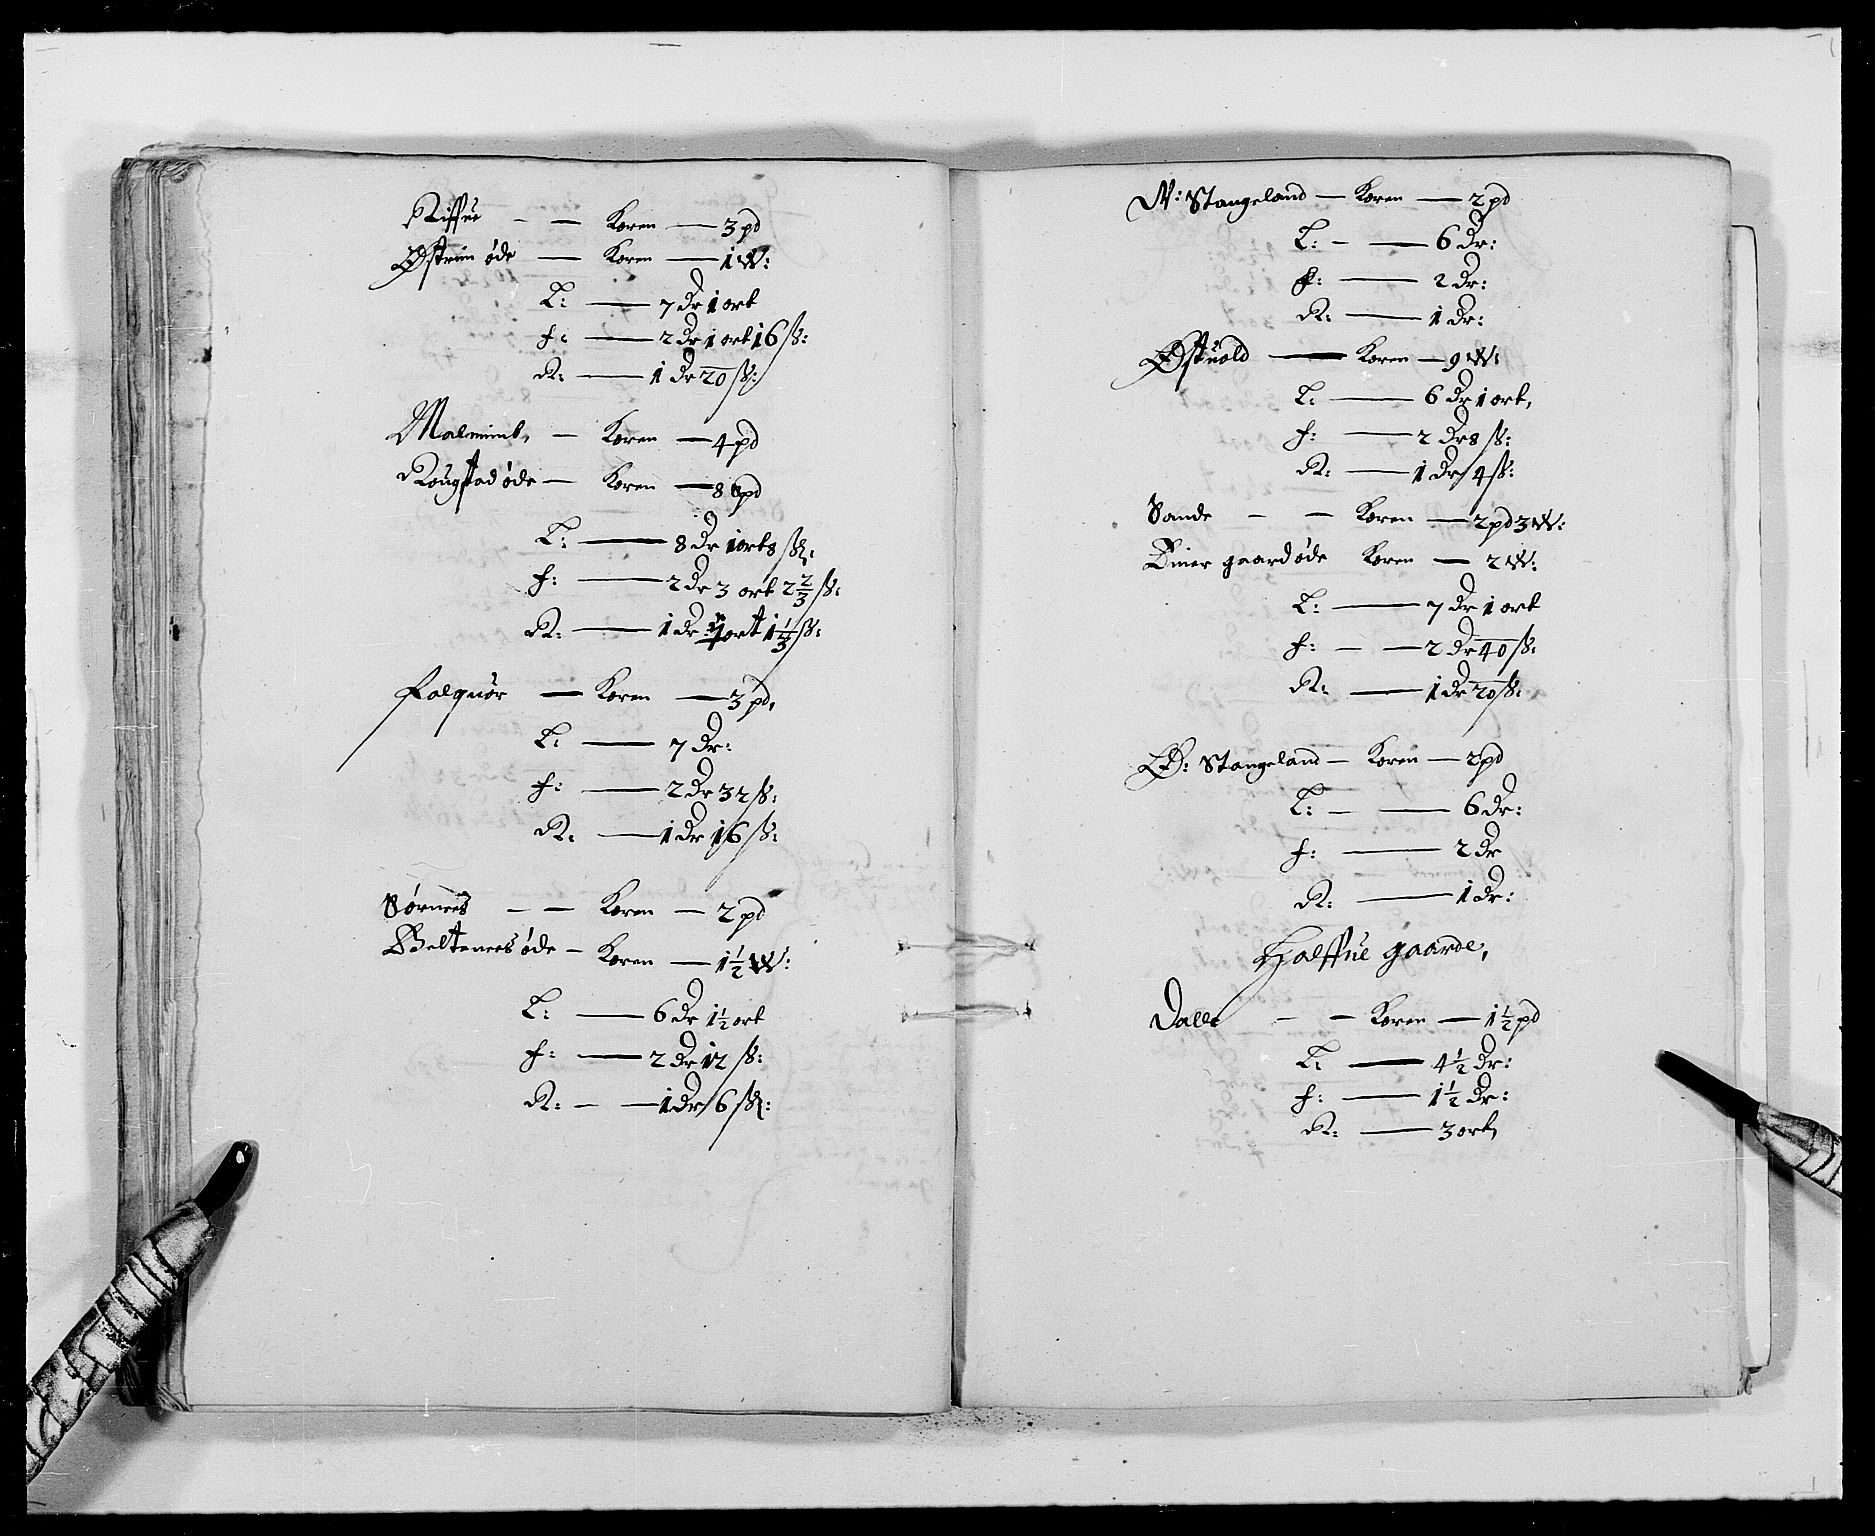 Riffue - - Koren - 3 pd
Østrim øde - Koren - 1 W:
L: - 7 dr 1 ort
f: - 2 dr 1 ort 16 ß:
R: - 1 dr 20 ß:
Malmimb, - Koren - 4 pd
Rougstad øde - Koren - 8 pd
L: - 8 dr 1 ort 8 ß:
f: - 2 dr 3 ort 2 2/3 ß:
R: - 1 dr 1 ort 1 1/3 ß:
Falquør - Koren - 3 pd,
L: - 7 dr:
f: - 2 dr 32 ß:
R: - 1 dr 16 ß:
Sørnees - - Koren - 2 pd
Beltenees øde - Koren - 1 1/2 W:
L: - 6 dr 1 1/2 ort
f: - 2 dr 12 ß:
R: - - 1 dr 6 ß:
N: Stangeland - Koren - 2 pd
L: - - 6 dr:
f: - 2 dr:
R: - 1 dr:
Østuold - Koren - 9 W:
L: - 6 dr 1 ort,
f: - 2 dr 8 ß:
R: - 1 dr 4 ß:
Sande - - Koren - 2 pd 3 W:
gaard øde Koren - 2 W:
L: - 7 dr 1 ort
f: - - 2 dr 40 ß:
R: - 1 dr 20 ß:
Ø: Stangeland - Koren - 2 pd
L: - - 6 dr:
f: - 2 dr
R: - 1 dr:
Halffue gaarde,
Dalle - - Koren - 1 1/2 pd
L: - 4 1/2 dr:
f: - 1 1/2 dr:
R: - 3 ort,